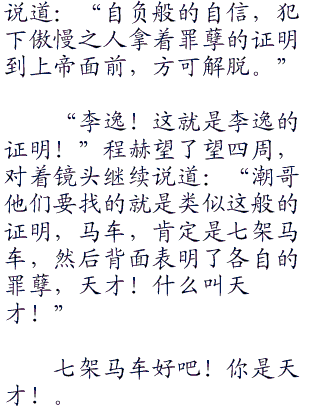 说道：“自负般的自信，犯
下傲慢之人拿着罪孽的证明
到上帝面前，方可解脱。”
“李逸！这就是李逸的
证明！”程赫望了望四周，
对着镜头继续说道：“潮哥
他们要找的就是类似这般的
证明，马车，肯定是七架马
车，然后背面表明了各自的
罪孽，天才！什么叫天
才！”
七架马车好吧！你是天
才！。